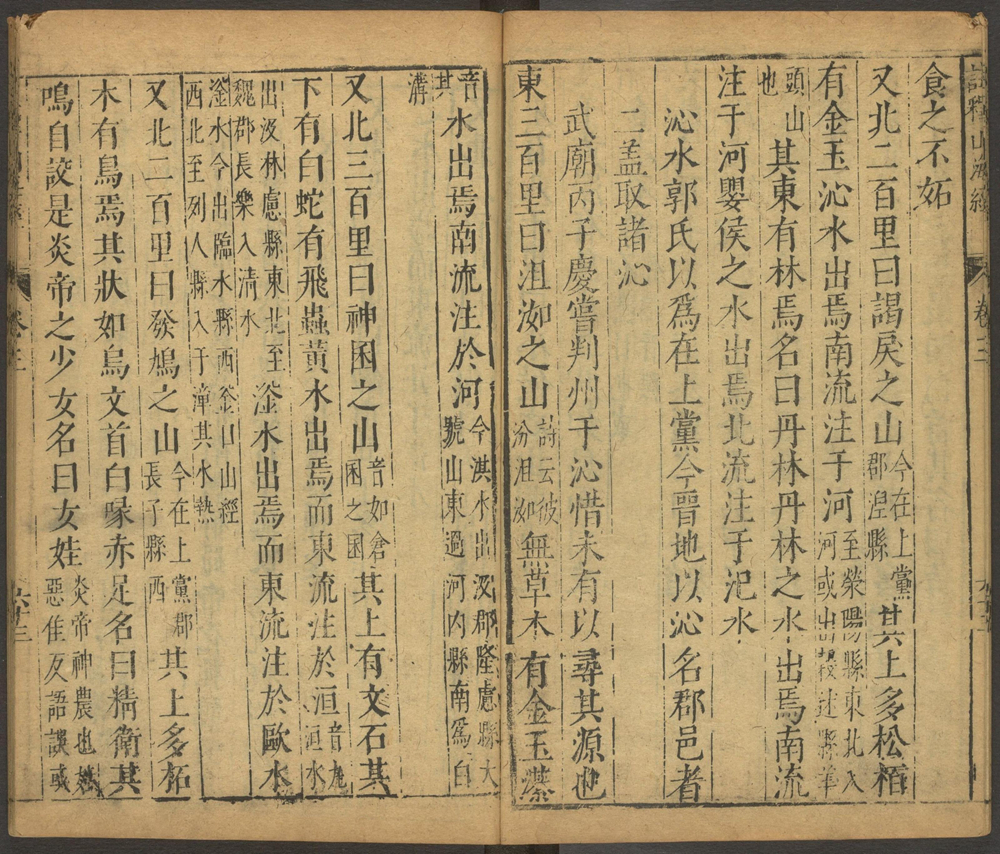 註釋山海經 卷三
食之不妬
又北二百里曰謁戾之山今在上黨郡涅縣其上多松栢
有金玉沁水出焉南流注于河至滎陽縣東北入河或出穀述縣羊
頭山也其東有林焉名曰丹林丹林之水出焉南流
注于河嬰侯之水出焉北流注于汜水
沁水郭氏以爲在上黨今晉地以沁名郡邑者
二盖取諸沁
武廟丙子慶嘗判州于沁惜未有以尋其源也
東三百里曰沮洳之山詩云彼汾沮洳無草木有金玉濝
音其水出焉南流注於河今淇水出汲郡隆慮縣大號山東過河内縣南爲白
溝
又北三百里曰神囷之山音如倉囷之囷其上有文石其
下有白蛇有飛蟲黄水出焉而東流注於洹音丸洹水
出汲林慮縣東北至魏郡長樂入清水滏水出焉而東流注於歐水
滏水今出臨水縣西滏口山經西北至列人縣入于漳其水熱
又北二百里曰發鳩之山今在上黨郡長子縣西其上多柘
木有鳥焉其狀如烏文首白喙赤足名曰精衛其
鳴自詨是炎帝之少女名曰女娃炎帝神農也娃惡佳反語誤或